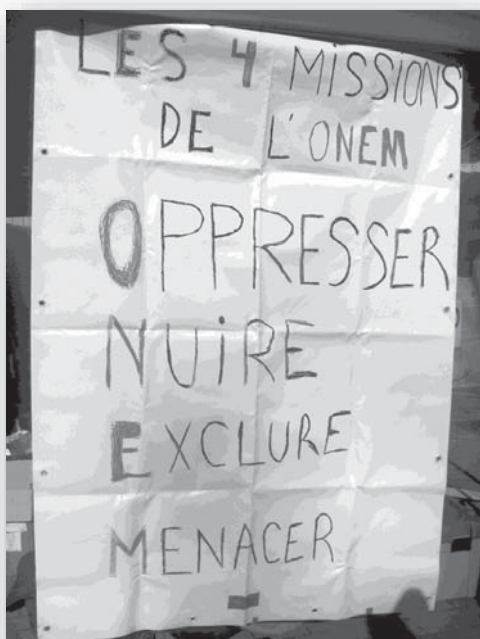 LES 4 MISSIONS
DE L'ONEM
OPPRESSER
NUiRE
EXCLURE
MENACER